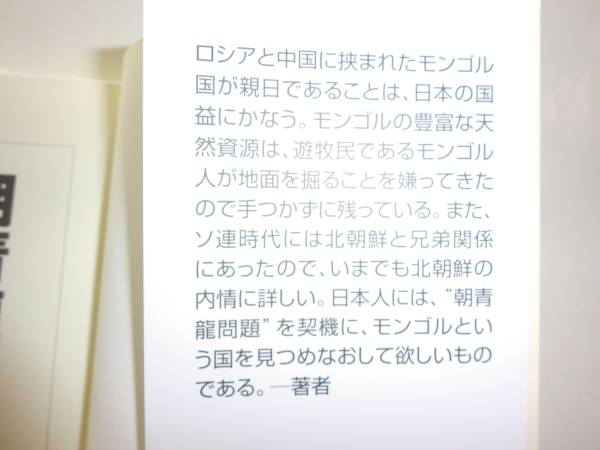 ロシアと中国に挟まれたモンゴル
国が親日であることは、日本の国
益にかなう。モンゴルの豊富な天
然資源は、遊牧民であるモンゴル
人が地面を掘ることを嫌ってきた
ので手つかずに残っている。また、
ソ連時代には北朝鮮と兄弟関係
にあったので、いまでも北朝鮮の
内情に詳しい。日本人には、“朝青
龍問題”を契機に、モンゴルとい
う国を見つめなおして欲しいもの
である。―著者